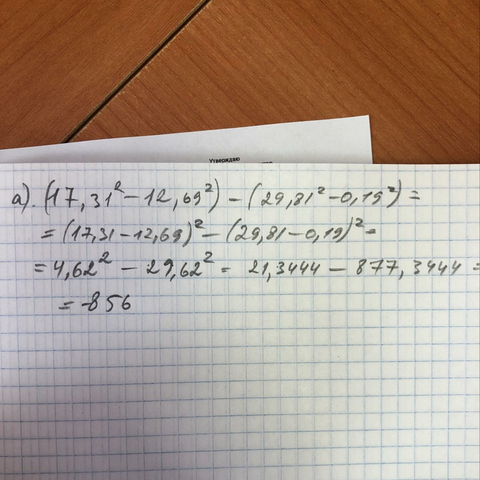 Утверждаю
а). (17,31² - 12,69²) - (29,81² - 0,19²) =
= (17,31 - 12,69)² - (29,81 - 0,19)² =
= 4,62² - 29,62² = 21,3444 - 877,3444 =
= -856